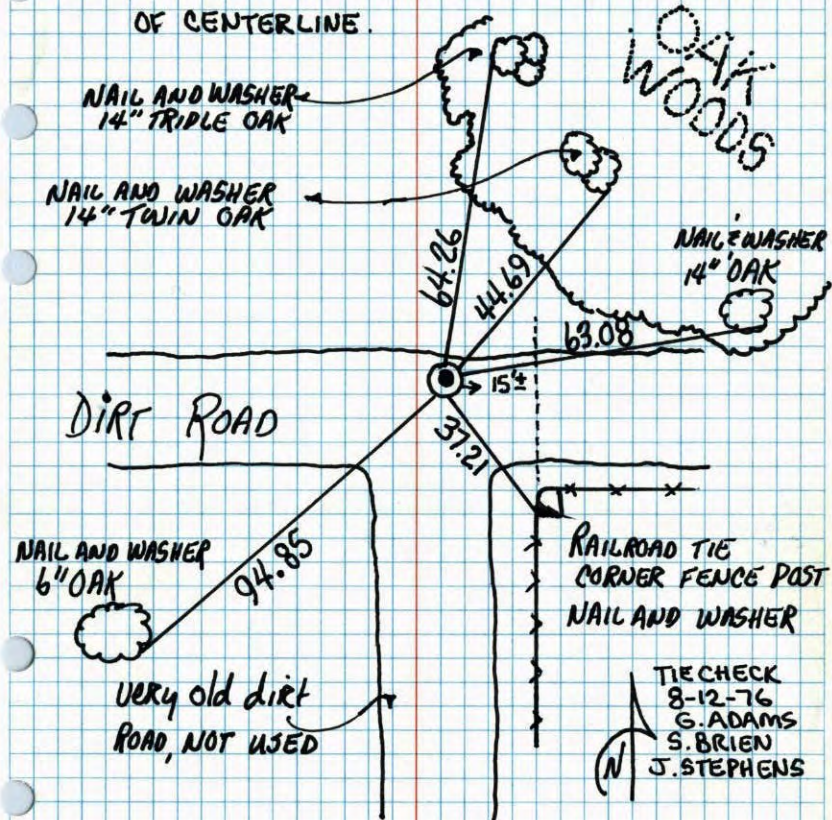 OF CENTERLINE.
OAK
WOODS
NAIL AND WASHER
14" TRIPLE OAK
NAIL AND WASHER
14" TWIN OAK
NAIL & WASHER
14" OAK
64.26
44.69
63.08
15'±
DIRT ROAD
37.21
NAIL AND WASHER
6" OAK
94.85
RAILROAD TIE
CORNER FENCE POST
NAIL AND WASHER
very old dirt
ROAD, NOT USED
TIE CHECK
8-12-76
G. ADAMS
S. BRIEN
J. STEPHENS
N